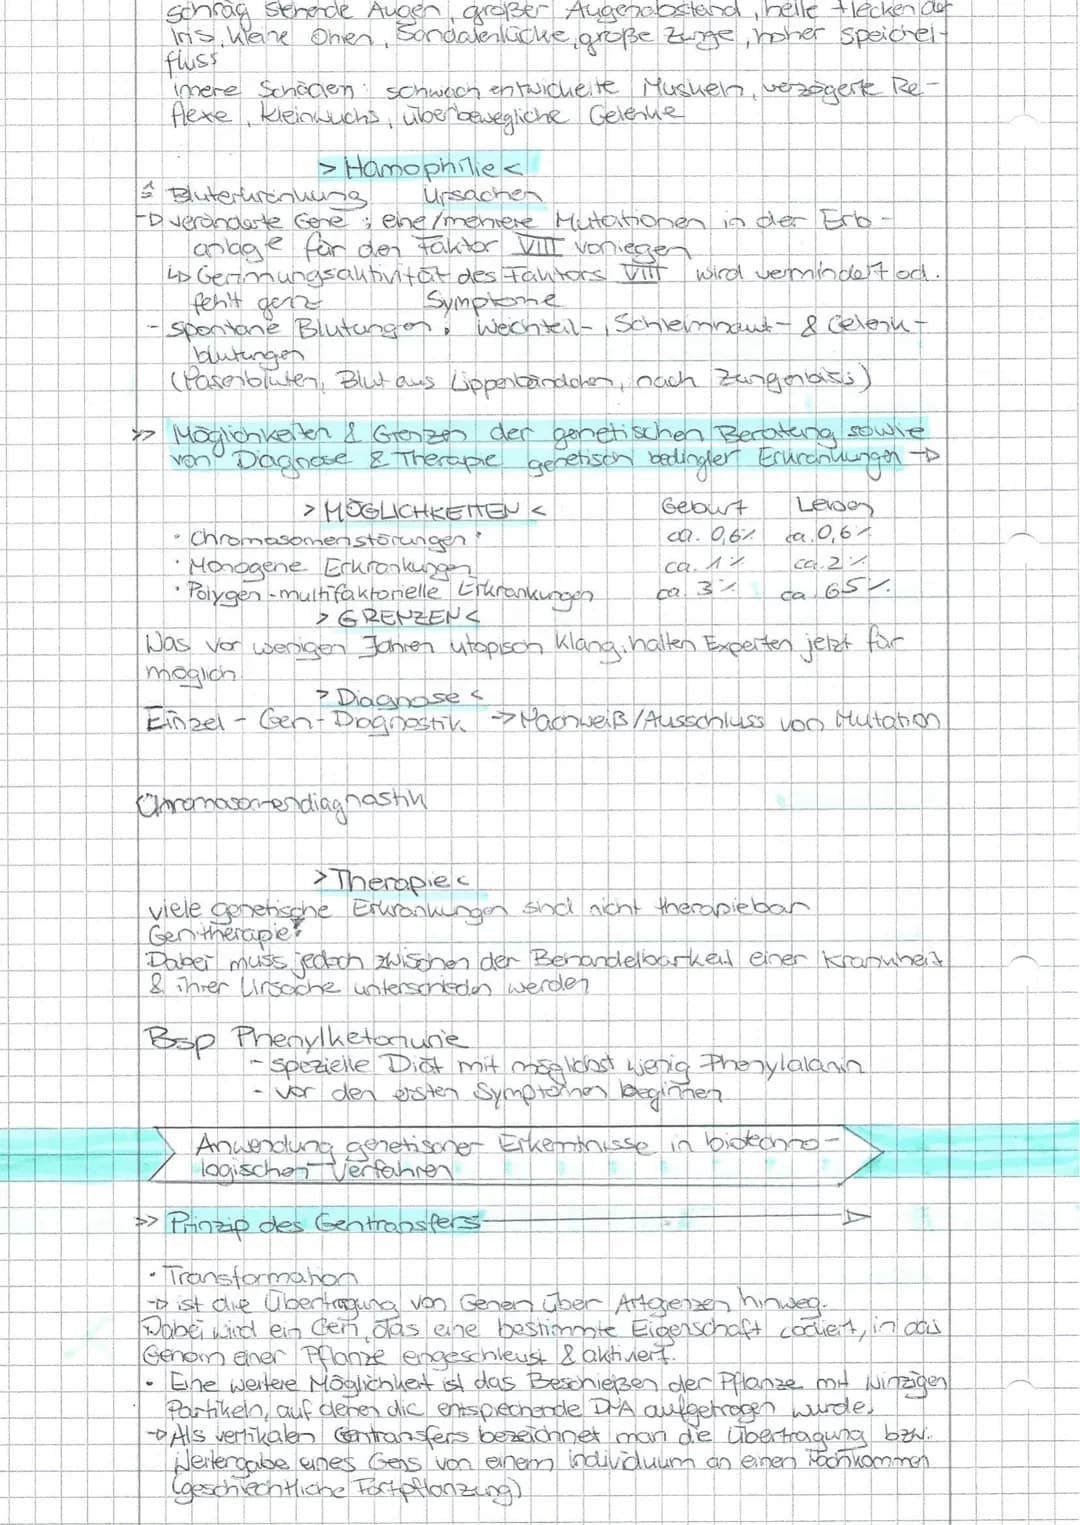 schräg stehende Augen, großer Augenabstand, helle Flecken der
Iris, kleine Ohren, Sandalenlücke, große Zunge, hoher Speichel-
fluss
innere Schäden: schwach entwickelte Muskeln, verzögerte Re-
flexe, Kleinwuchs, überbewegliche Gelenke
> Hämophilie <
≙ Bluterkrankung Ursachen
→ veränderte Gene; eine/mehrere Mutationen in der Erb-
anlage für den Faktor VIII vorliegen
↳ Gerinnungsaktivität des Faktors VIII wird vermindert od.
fehlt ganz Symptome
- spontane Blutungen, Weichteil-, Schleimhaut- & Gelenk-
blutungen
(Nasenbluten, Blut aus Lippenbändchen, nach Zungenbiss)
>> Möglichkeiten & Grenzen der genetischen Beratung sowie
von Diagnose & Therapie genetisch bedingter Erkrankungen →
> MÖGLICHKEITEN < Geburt Leben
· Chromosomenstörungen ca. 0,6% ca. 0,6%
· Monogene Erkrankungen ca. 1% ca. 2%
· Polygen-multifaktorielle Erkrankungen ca. 3% ca. 65%
> GRENZEN <
Was vor wenigen Jahren utopisch klang, halten Experten jetzt für
möglich.
> Diagnose <
Einzel-Gen-Diagnostik → Nachweiß/Ausschluss von Mutation
Chromosomendiagnostik
> Therapie <
viele genetische Erkrankungen sind nicht therapiebar
Gentherapie?
Dabei muss jedoch zwischen der Behandelbarkeit einer Krankheit
& ihrer Ursache unterschieden werden
Bsp Phenylketonurie
- spezielle Diät mit möglichst wenig Phenylalanin
- vor den ersten Symptomen beginnen
Anwendung genetischer Erkenntnisse in biotechno-
logischen Verfahren
>> Prinzip des Gentransfers →
· Transformation
→ ist die Übertragung von Genen über Artgrenzen hinweg.
Dabei wird ein Gen, das eine bestimmte Eigenschaft codiert, in das
Genom einer Pflanze eingeschleust & aktiviert.
· Eine weitere Möglichkeit ist das Beschießen der Pflanze mit winzigen
Partikeln, auf denen die entsprechende DNA aufgetragen wurde.
→ Als vertikalen Gentransfers bezeichnet man die Übertragung bzw.
Weitergabe eines Gens von einem Individuum an einen Nachkommen
(geschlechtliche Fortpflanzung)